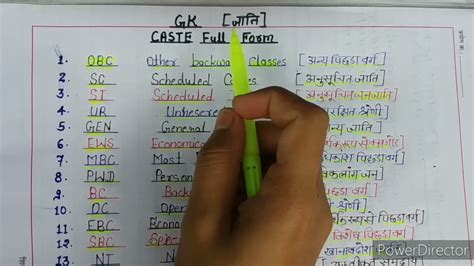 GK [जाति]
CASTE Full Form
1. OBC Other backward Classes [अन्य पिछड़ा वर्ग]
2. SC Scheduled [अनुसूचित जाति]
3. ST Scheduled [अनुसूचित जनजाति]
4. UR Unreserve श्रेणी]
5. GEN General जाति]
6. EWS Economic
7. MBC Most पिछड़ा वर्ग]
8. PWD Person जन]
9. BC Backwa पिछड़ा वर्ग]
10 OC Open श्रेणी]
11 EBC Econo रूप से पिछड़ा वर्ग]
12. SBC Spec विशेष पिछड़ा वर्ग]
13. NT
PowerDirector